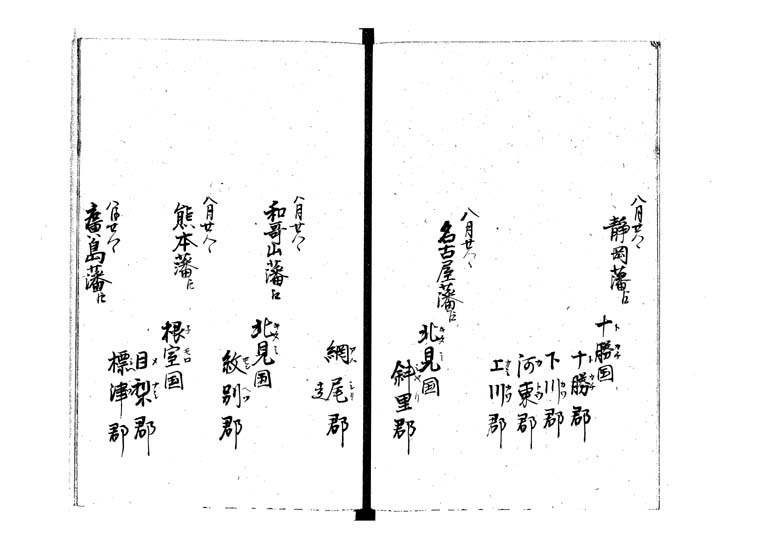 八月廿八日
静岡藩
十勝国
十勝郡
下川郡
河東郡
上川郡
八月廿八日
名古屋藩
北見国
斜里郡
網尾郡
走
八月廿八日
和哥山藩
北見国
紋別郡
八月廿八日
熊本藩
根室国
目梨郡
標津郡
八月廿八日
廣島藩